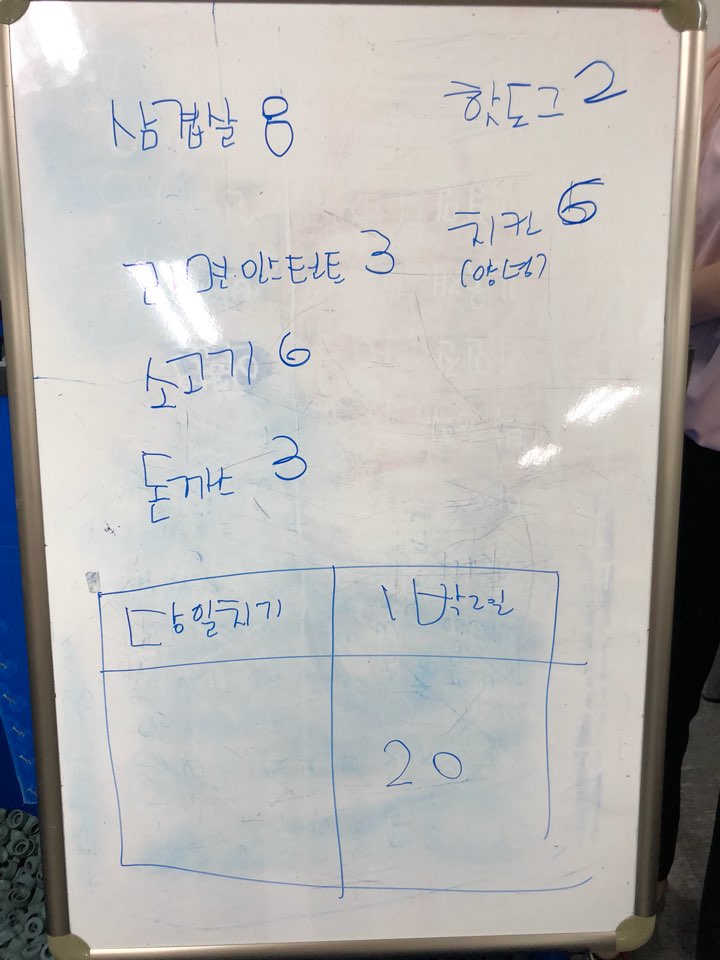 삼겹살 8
핫도그 2
치킨 5
(양념)
라면·인스턴트 3
소고기 6
돈까스 3
당일치기
1박2일
20